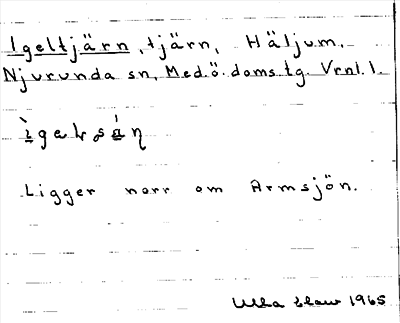 Igeltjärn, tjärn, Häljum,
Njurunda sn, Med.ö. doms.tg. Vrnl. l.
Ligger norr om Armsjön.
Ulla 1965